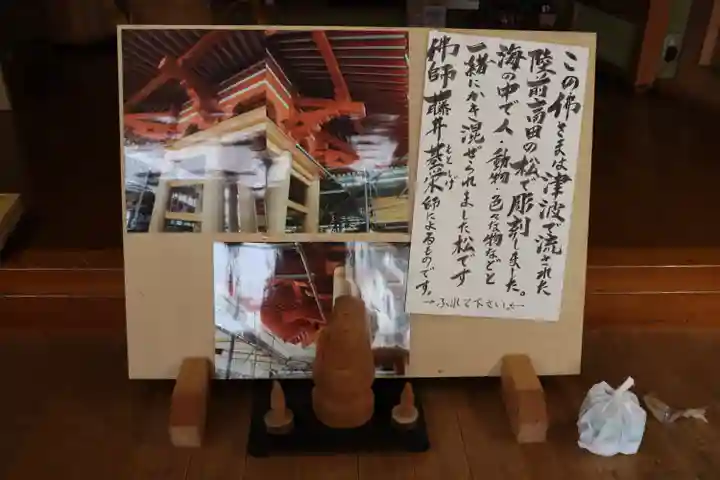 この佛さまは津波で流された
陸前高田の松で彫刻しました。
海の中で人・動物・色々な物などと
一緒にかき混ぜられました松です
佛師 藤井
師によるものです。
→ふれて下さい。←